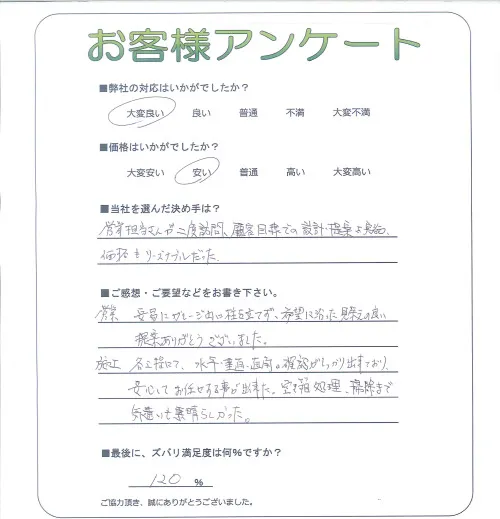 お客様アンケート
■弊社の対応はいかがでしたか?
大変良い 良い 普通 不満 大変不満
■価格はいかがでしたか?
大変安い 安い 普通 高い 大変高い
■当社を選んだ決め手は?
営業担当さんが二度訪問、顧客目線での設計・提案を実施。
価格もリーズナブルだった。
■ご感想・ご要望などをお書き下さい。
営業 安易にガレージ出口に柱を立てず、希望に沿った見栄えの良い
提案ありがとうございました。
施工 各工程にて、水平・垂直・直角の確認がしっかり出来ており、
安心してお任せする事が出来た。空き箱処理、掃除まで
気遣いも素晴らしかった。
■最後に、ズバリ満足度は何%ですか?
120 %
ご協力頂き、誠にありがとうございました。